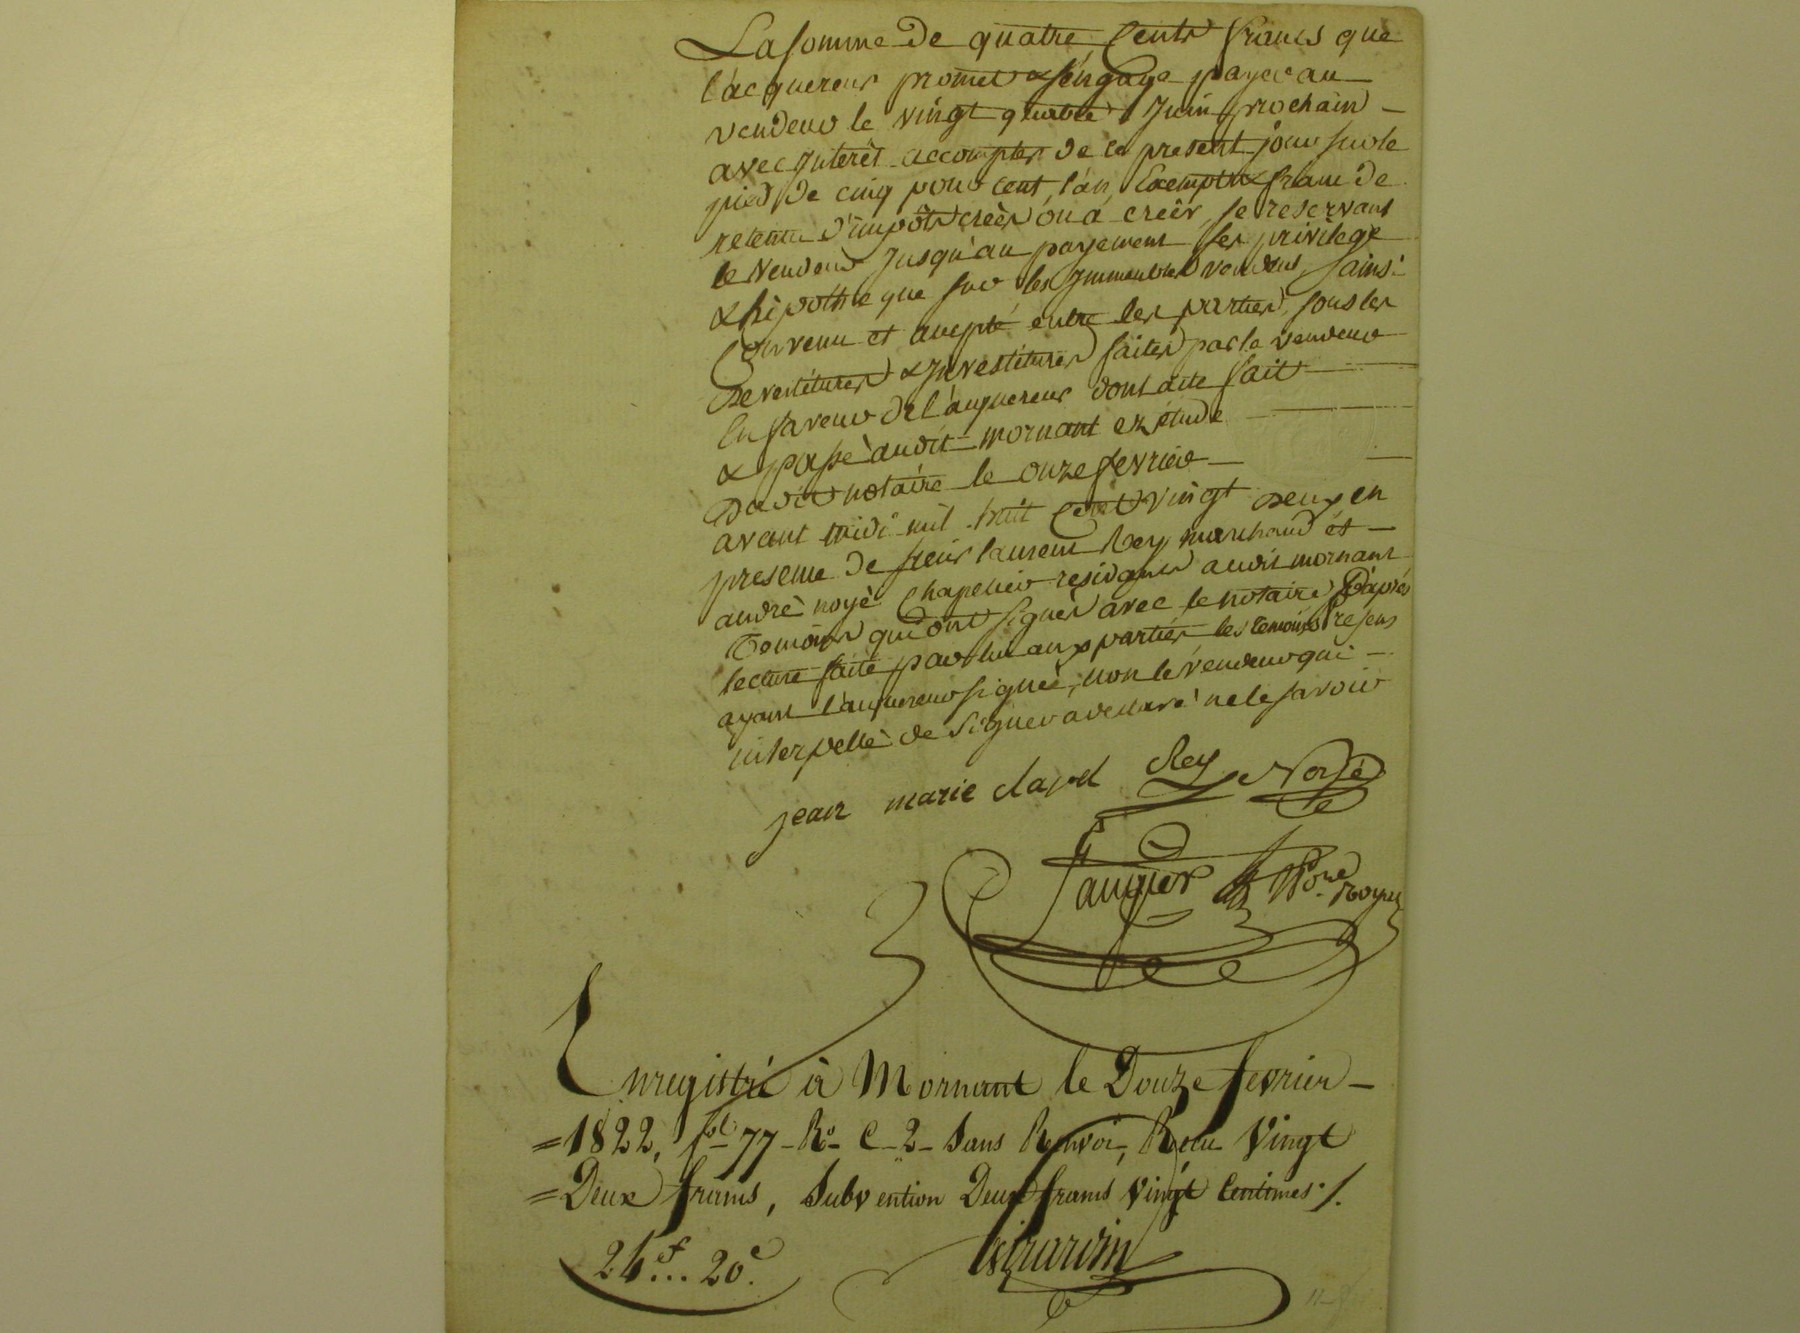 La somme de quatre Cents francs que
l'acquereur promet & s'engage payer au
vendeur le vingt quatre Juin prochain
avec Interêt accompter de ce present jour sur le
pied de cinq pour cent l'an, Exempts & franc de
retenue d'impôts créés ou á creêr, se reservant
le Vendeur Jusqu'au payement ses privilege
& hipotheque sur les Jmmeubles vendus, ainsi
Convenu et accepté entre les parties, sous les
Devestitures & Jnvestitures faites par le vendeur
En faveur de l'acquereur dont acte fait
& passé audit mornant en étude
dudit notaire le onze fevrier
avant midi mil huit Cent vingt Deux en
presence de sieurs laurent Rey marchand et
andré noyé Chapelier residants audit mornant
Temoins qui ont signés avec le notaire D'aprés
lecture faite par lui aux parties les temoins presens
ayant l'acquereur signé, non le vendeur qui
interpellé de signer a declaré ne le savoir
jean marie clapel Rey Noyé
Enregistré à Mornant le Douze fevrier
=1822, fol 77 Ro C 2 Sans Renvoi, Recu Vingt
=Deux francs, Subvention Deux francs Vingt Centimes ./.
24f... 20c.